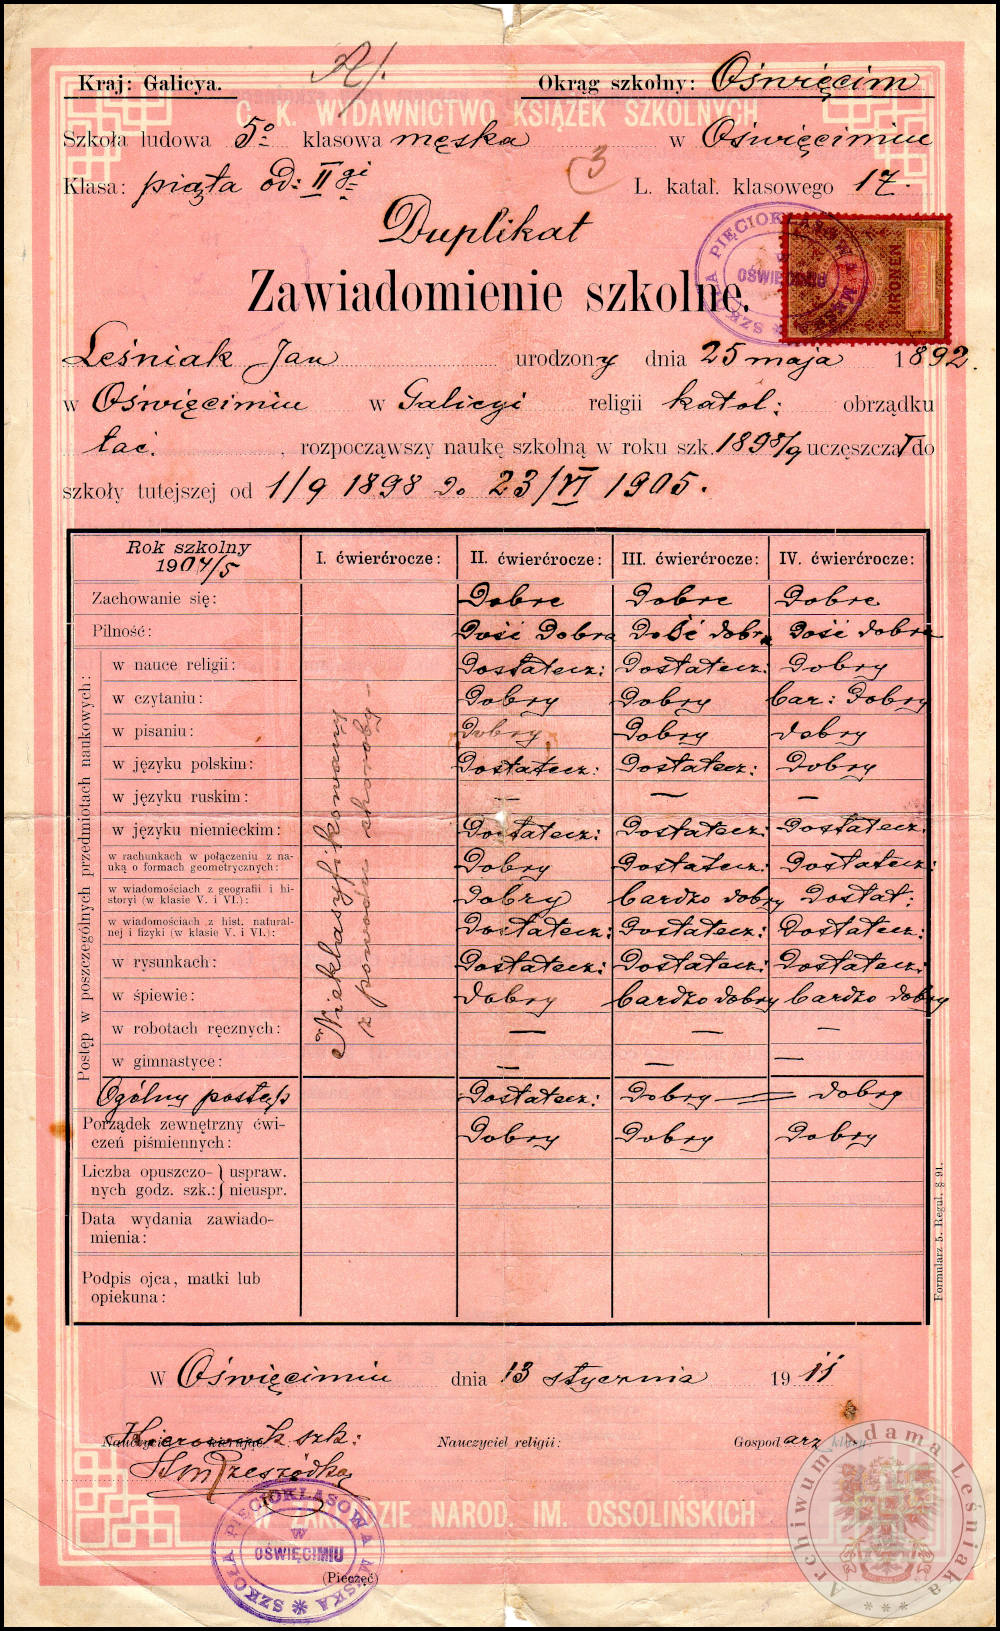 A/.
Kraj: Galicya.
Okrąg szkolny: Oświęcim
C. K. WYDAWNICTWO KSIĄŻEK SZKOLNYCH
Szkoła ludowa 5º klasowa męska w Oświęcimiu
3
Klasa: piąta od: II gi L. katal. klasowego 17.
Duplikat
SZKOŁA PIĘCIOKLASOWA MĘSKA W OŚWIĘCIMIU
KRONEN
1910
Zawiadomienie szkolne.
Leśniak Jan urodzony dnia 25 maja 1892.
w Oświęcimiu w Galicyi religii katol: obrządku
łać. , rozpocząwszy naukę szkolną w roku szk. 1898/9 uczęszczał do
szkoły tutejszej od 1/9 1898 do 23/VI 1905.
Rok szkolny 1904/5 I. ćwierćrocze: II. ćwierćrocze: III. ćwierćrocze: IV. ćwierćrocze:
Zachowanie się: Dobre Dobre Dobre
Pilność: Dość Dobra Dość dobra Dość dobra
Postęp w poszczególnych przedmiotach naukowych:
Nieklasyfikowany
z powodu choroby –
w nauce religii: Dostatecz: Dostatecz: Dobry
w czytaniu: Dobry Dobry bar: Dobry
w pisaniu: Dobry Dobry dobry
w języku polskim: Dostatecz: Dostatecz: Dobry
w języku ruskim: — — —
w języku niemieckim: Dostatecz: Dostatecz: Dostatecz:
w rachunkach w połączeniu z nauką o formach geometrycznych: Dobry Dostatecz: Dostatecz:
w wiadomościach z geografii i historyi (w klasie V. i VI.): Dobry bardzo dobry Dostat:
w wiadomościach z hist. naturalnej i fizyki (w klasie V. i VI.): Dostatecz: Dostatecz: Dostatecz:
w rysunkach: Dostatecz: Dostatecz: Dostatecz:
w śpiewie: dobry bardzo dobry bardzo dobry
w robotach ręcznych: — — —
w gimnastyce: — — —
Ogólny postęp Dostatecz: Dobry — dobry
Porządek zewnętrzny ćwi-
czeń piśmiennych: Dobry Dobry Dobry
Liczba opuszczo- } uspraw.
nych godz. szk.: { nieuspr.
Data wydania zawiado-
mienia:
Podpis ojca, matki lub
opiekuna:
Formularz 5. Regul. § 91.
W Oświęcimiu dnia 13 stycznia 1911
Kierownik szk:
Nauczyciel religii:
Gospodarz klasy:
W ZAKŁADZIE NAROD. IM. OSSOLIŃSKICH
SZKOŁA PIĘCIOKLASOWA MĘSKA W OŚWIĘCIMIU
(Pieczęć)
Archiwum Adama Leśniaka